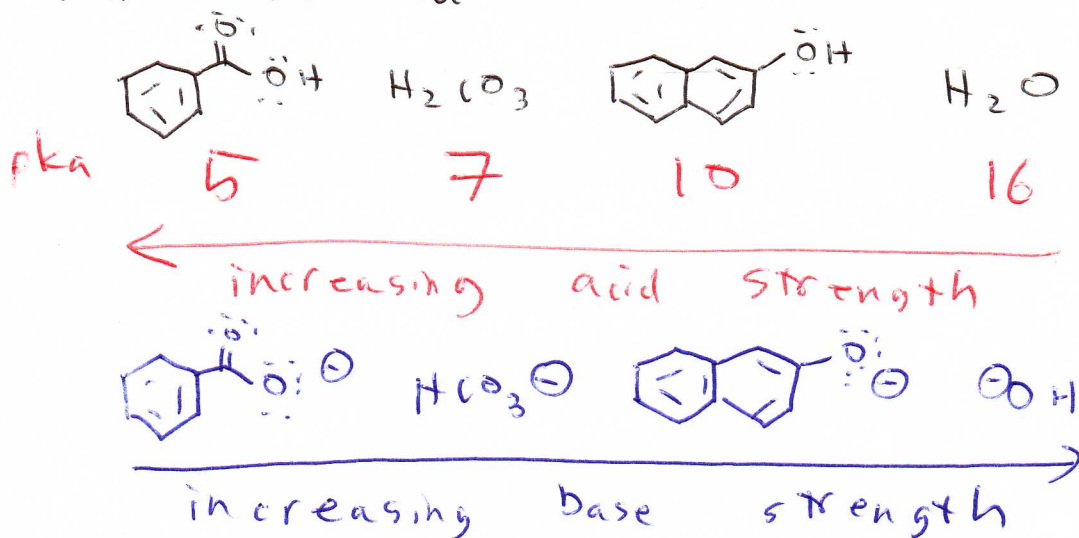 O OH H2CO3 OH H2O
pka 5 7 10 16
increasing acid strength
O O ⊖ HCO3⊖ O ⊖ ⊖OH
increasing base strength